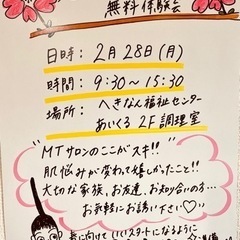 無料体験会
日時： 2月28日(月)
時間： 9:30～15:30
場所： へきなん福祉センター
あいくる 2F 調理室
"MTサロンのここがスキ!!
肌悩みが変わって嬉しかったこと!!
大切な家族、お友達、お知り合いの…
お気軽にお誘い下さい♡
春に向けていいスタートになるように